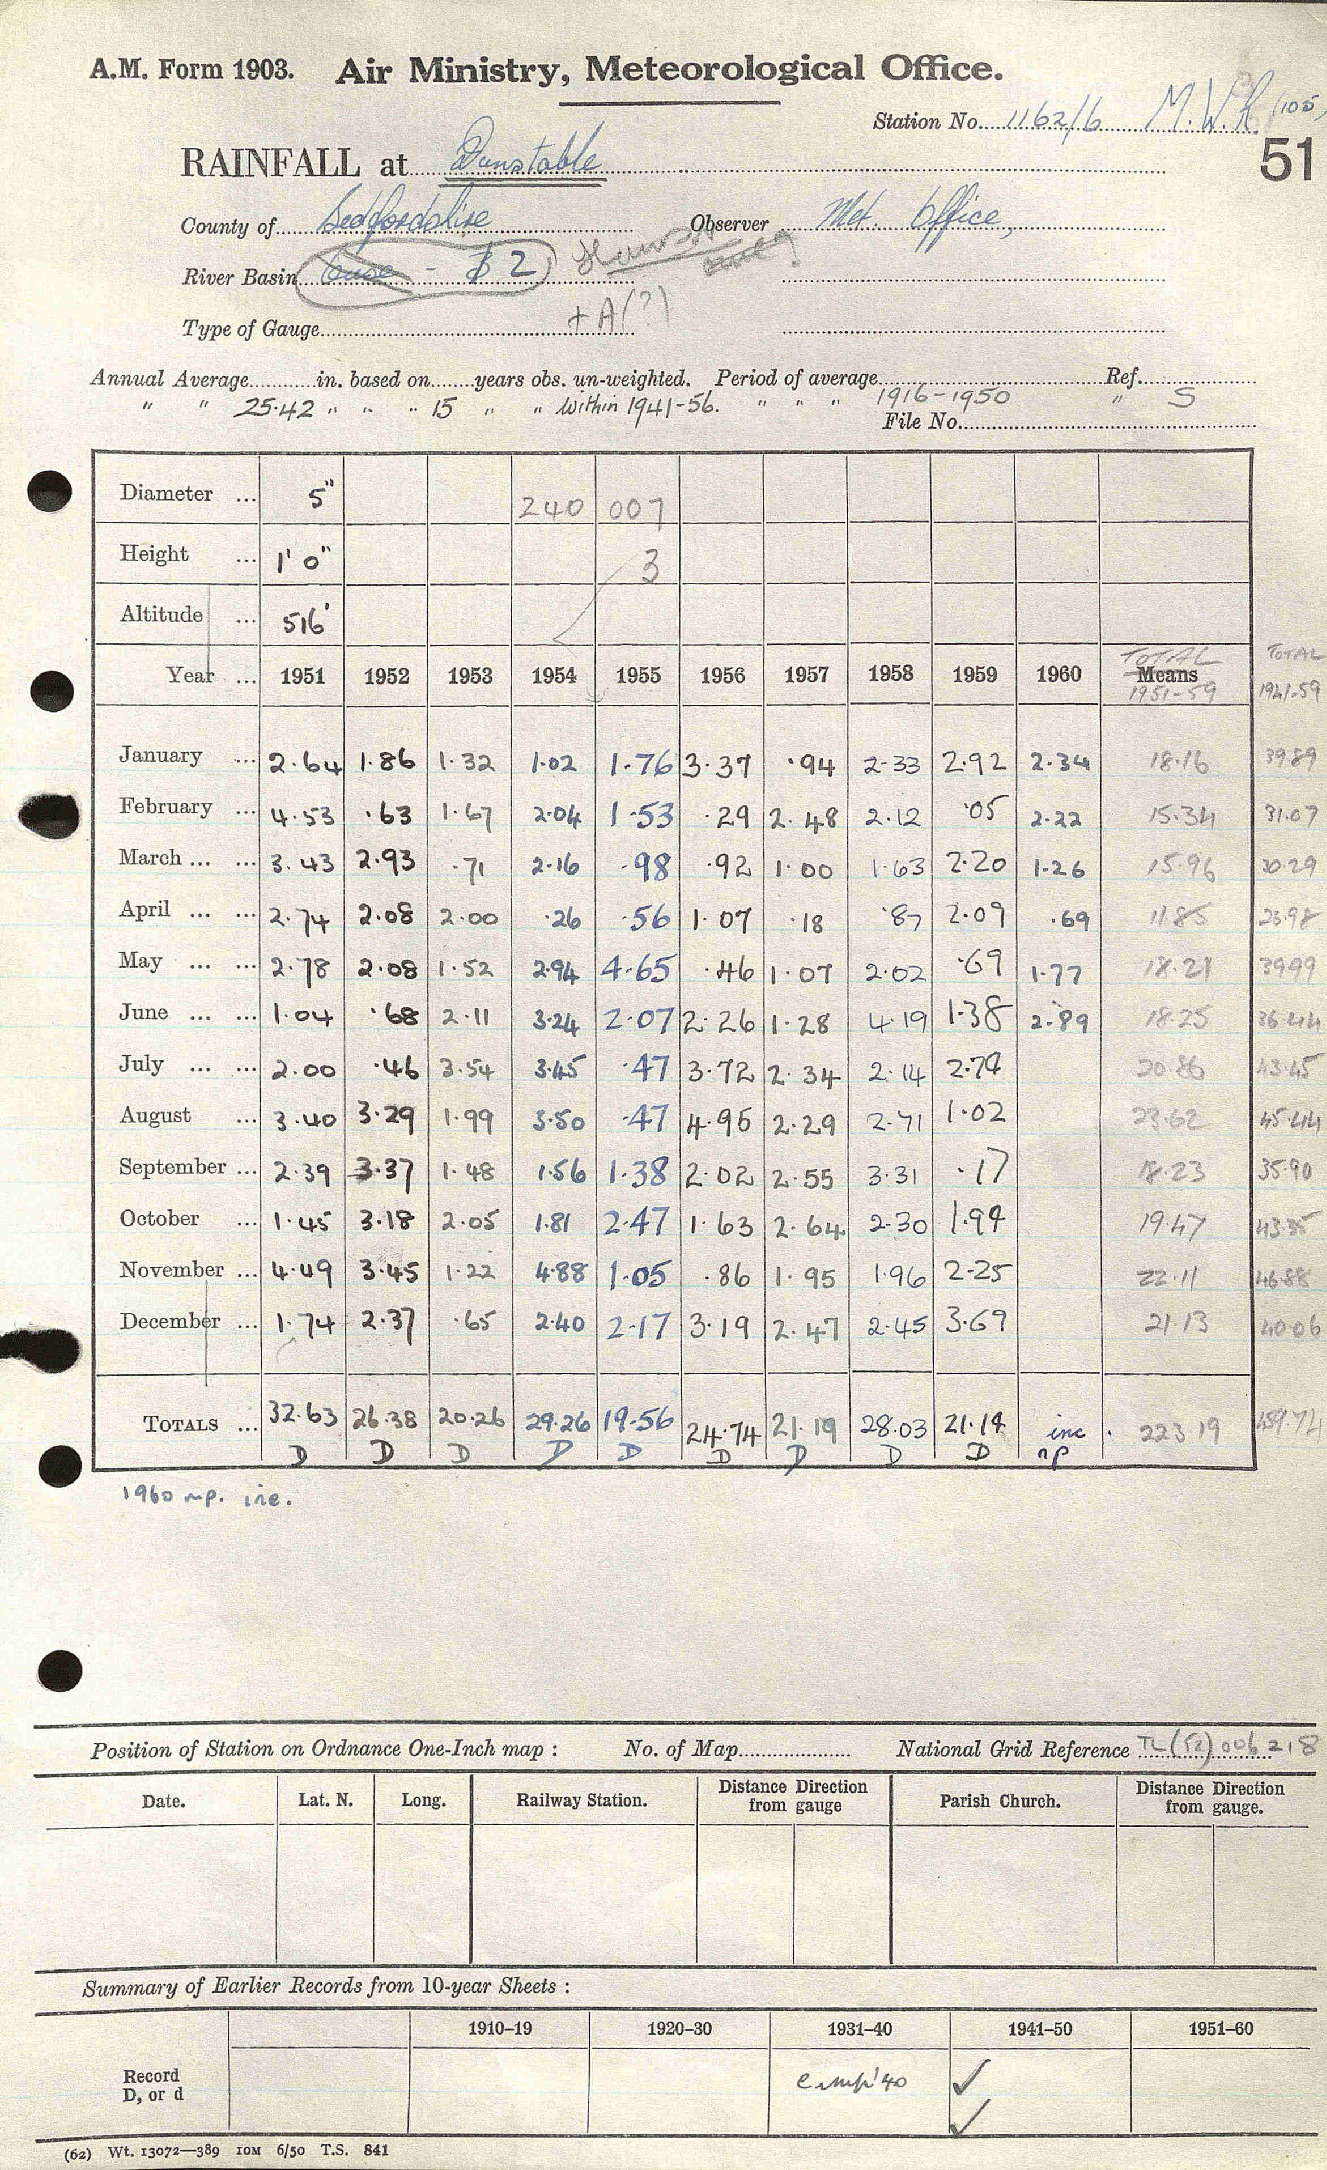 A.M. Form 1903. Air Ministry, Meteorological Office.
Station No. 1162/6 M.W.R (105)
51
RAINFALL at Dunstable
County of Bedfordshire Observer Met. Office,
River Basin Ouse - B 2
Type of Gauge + A(?)
Annual Average in. based on years obs. un-weighted. Period of average Ref.
" " 25.42 " " " 15 " " Within 1941-56. " " " 1916-1950 " S
File No.
Diameter ... 5" 240 007
Height ... 1' 0" 3
Altitude ... 516'
Year ... 1951 1952 1953 1954 1955 1956 1957 1958 1959 1960 Means TOTAL 1951-59 TOTAL 1941-59
January ... 2.64 1.86 1.32 1.02 1.76 3.37 .94 2.33 2.92 2.34 18.16 39.89
February ... 4.53 .63 1.67 2.04 1.53 .29 2.48 2.12 .05 2.22 15.34 31.07
March ... ... 3.43 2.93 .71 2.16 .98 .92 1.00 1.63 2.20 1.26 15.96 30.29
April ... ... 2.74 2.08 2.00 .26 .56 1.07 .18 .87 2.09 .69 11.85 23.98
May ... ... 2.78 2.08 1.52 2.94 4.65 .46 1.07 2.02 .69 1.77 18.21 39.99
June ... ... 1.04 .68 2.11 3.24 2.07 2.26 1.28 4.19 1.38 2.89 18.25 36.44
July ... ... 2.00 .46 3.54 3.45 .47 3.72 2.34 2.14 2.74 20.86 43.45
August ... 3.40 3.29 1.99 3.50 .47 4.95 2.29 2.71 1.02 23.62 45.44
September ... 2.39 3.37 1.48 1.56 1.38 2.02 2.55 3.31 .17 18.23 35.90
October ... 1.45 3.18 2.05 1.81 2.47 1.63 2.64 2.30 1.94 19.47 43.35
November ... 4.49 3.45 1.22 4.88 1.05 .86 1.95 1.96 2.25 22.11 46.88
December ... 1.74 2.37 .65 2.40 2.17 3.19 2.47 2.45 3.69 21.13 40.06
TOTALS ... 32.63 26.38 20.26 29.26 19.56 24.74 21.19 28.03 21.14 inc. 223.19 459.74
D D D D D D D D D np
1960 np. inc.
Position of Station on Ordnance One-Inch map : No. of Map National Grid Reference TL (52) 006 218
Date. Lat. N. Long. Railway Station. Distance Direction from gauge Parish Church. Distance Direction from gauge.
Summary of Earlier Records from 10-year Sheets :
1910–19 1920–30 1931–40 1941–50 1951–60
Record D, or d '40 ✓
✓
(62) Wt. 13072—389 10M 6/50 T.S. 841